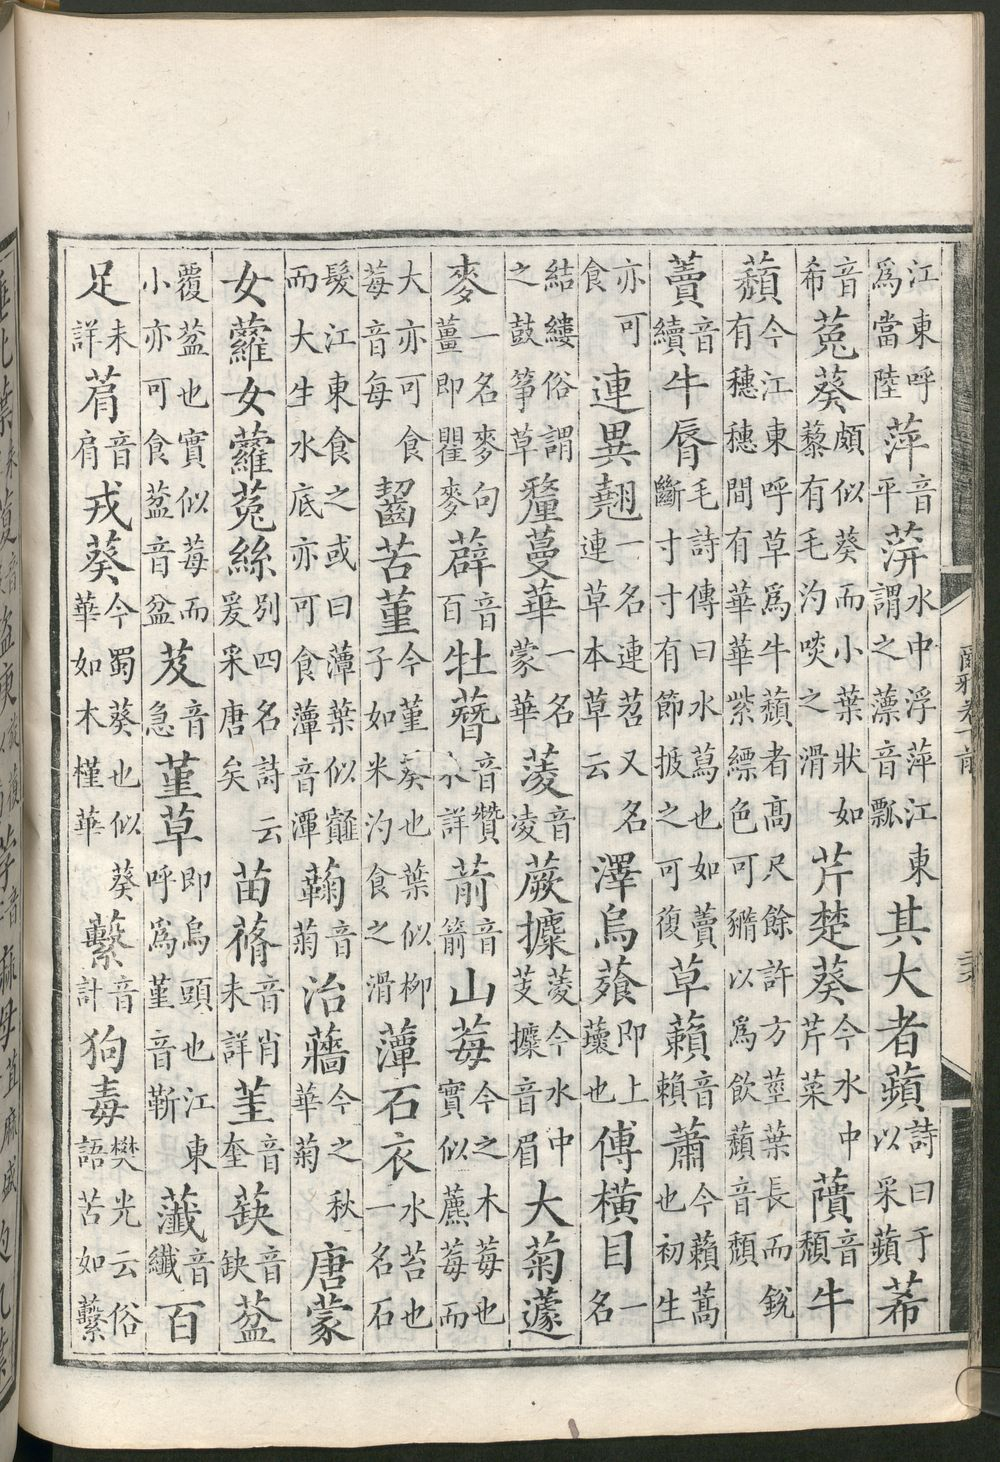 江東呼爲當陸萍音平蓱水中浮萍江東謂之薸音瓢其大者蘋詩曰于以采蘋莃
音希菟葵頗似葵而小葉狀如藜有毛汋啖之滑芹楚葵今水中芹菜藬音頹牛
蘈今江東呼草爲牛蘈者高尺餘許方莖葉長而銳有穗穗間有華華紫縹色可以爲飲蘈音頹
藚音續牛脣毛詩傳曰水蕮也如藚斷寸寸有節拔之可復草藾音賴蕭今藾蒿也初生
亦可食連異翹一名連苕又名連草本草云澤烏蕵即上壞也傅橫目一名
結縷俗謂之鼓箏草釐蔓華一名蒙華蔆音凌蕨攗菱今水中芰攗音眉大菊蘧
麥一名麥句薑即瞿麥薜音百牡䕆音贊未詳葥音箭山莓今之木莓也實似藨莓而
大亦可食莓音每齧苦堇今堇葵也葉似柳子如米汋食之滑藫石衣水苔也一名石
髮江東食之或曰藫葉似䪥而大生水底亦可食藫音潭蘜音菊治蘠今之秋華菊唐蒙
女蘿女蘿菟絲別四名詩云爰采唐矣苗蓨音肖未詳茥音奎蒛音缺葐
覆盆也實似莓而小亦可食葐音盆芨音急堇草即烏頭也江東呼爲堇音靳虃音纖百
足未詳菺音肩戎葵今蜀葵也似葵華如木槿華蘻音計狗毒樊光云俗語苦如蘻